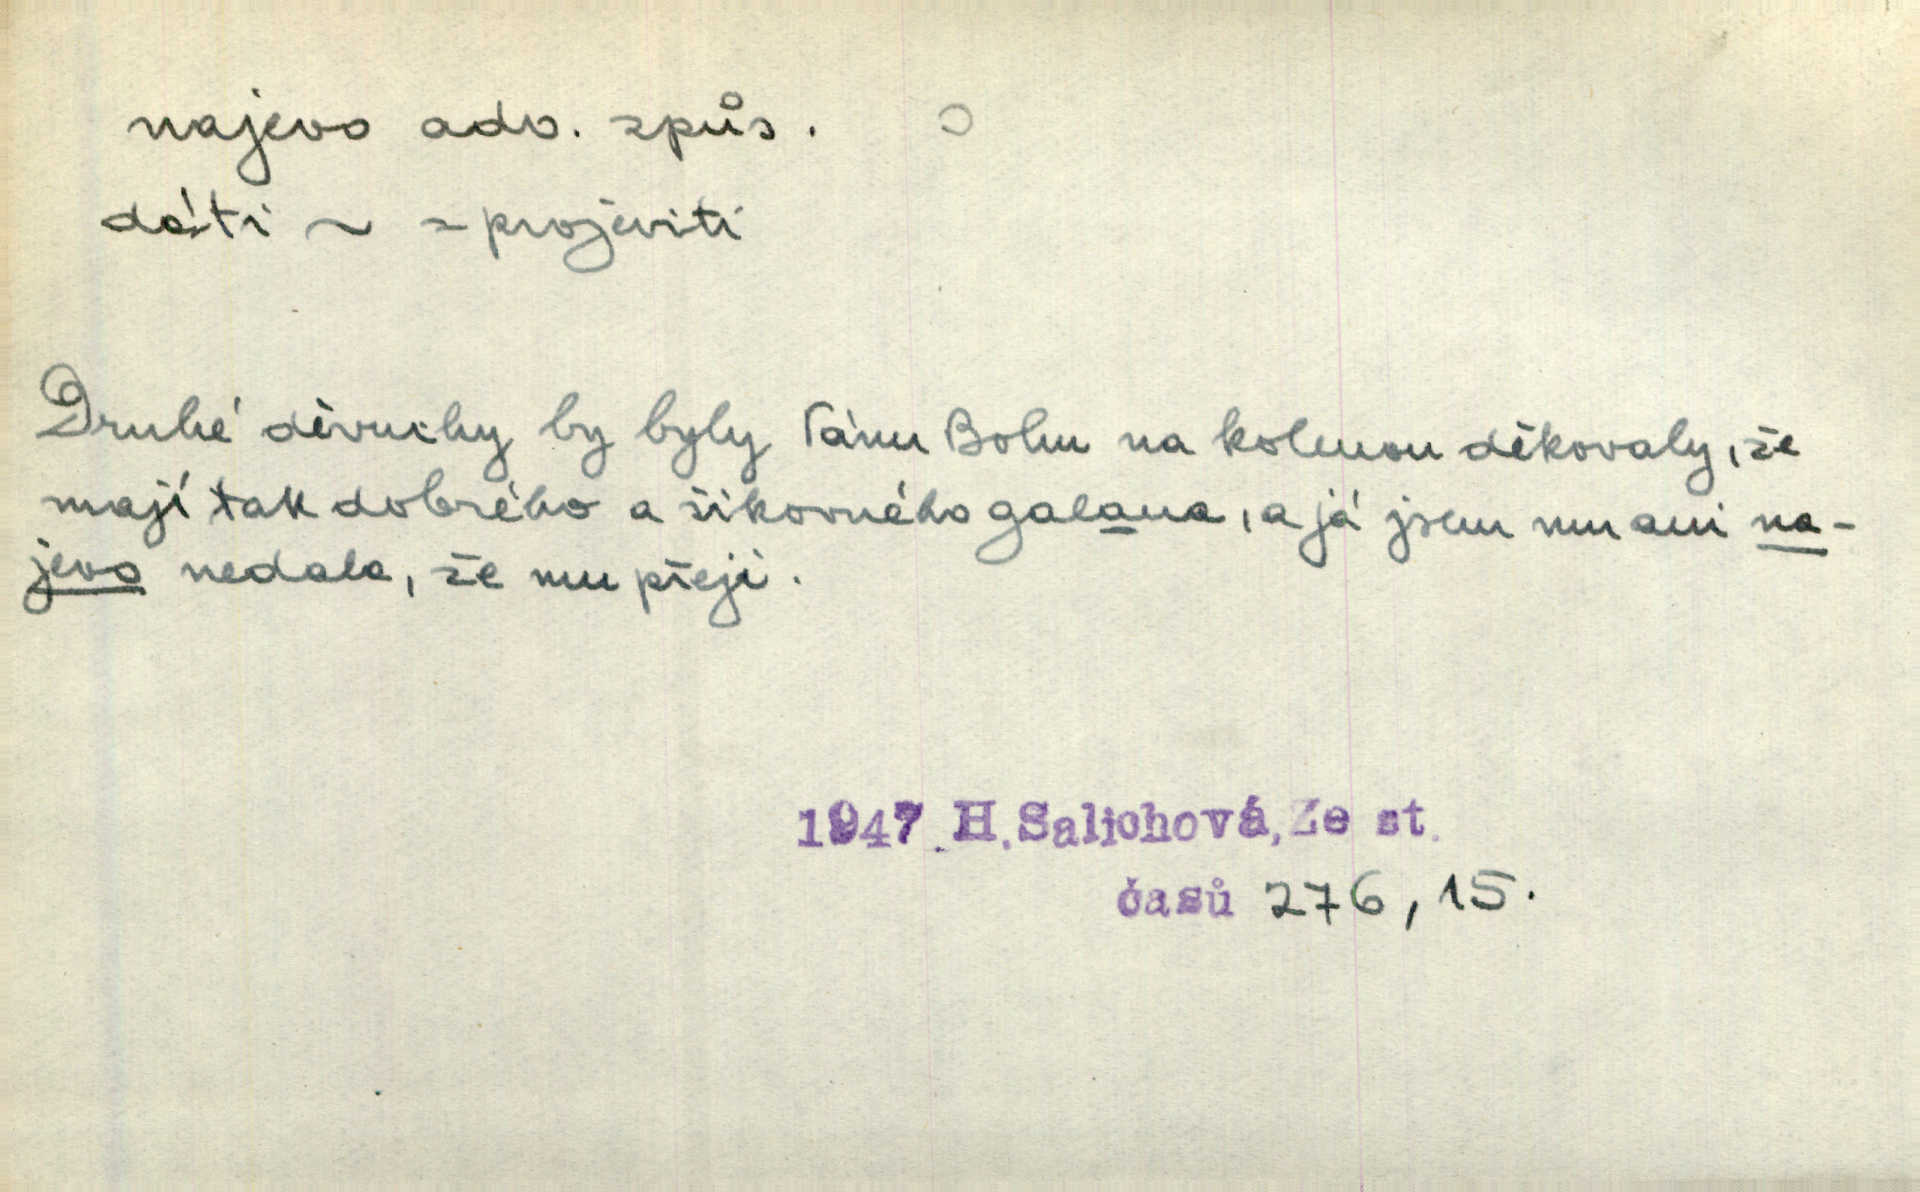 najevo adv. způs.
dáti ~ = projeviti
Druhé děvuchy by byly Pánu Bohu na kolenou děkovaly, že
mají tak dobrého a šikovného galana, a já jsem mu ani na-
jevo nedala, že mu přeji.
1947. H. Salichová, Ze st.
časů 276, 15.